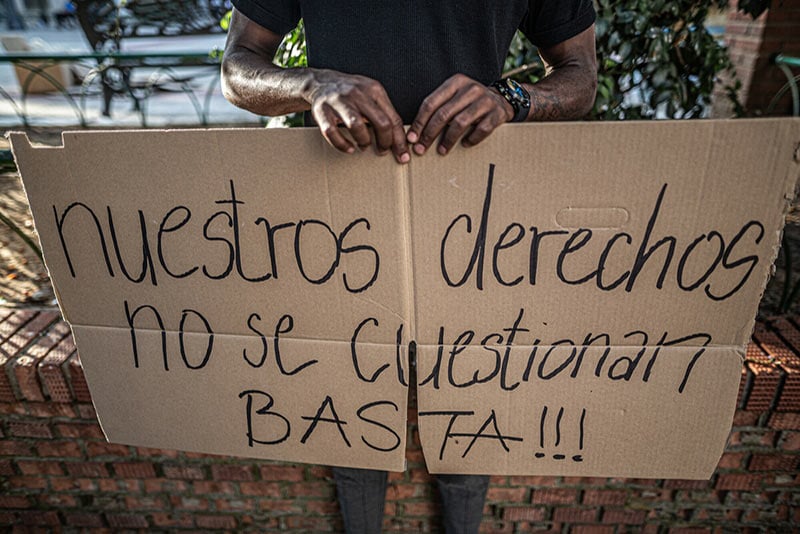 nuestros derechos
no se cuestionan
BASTA!!!